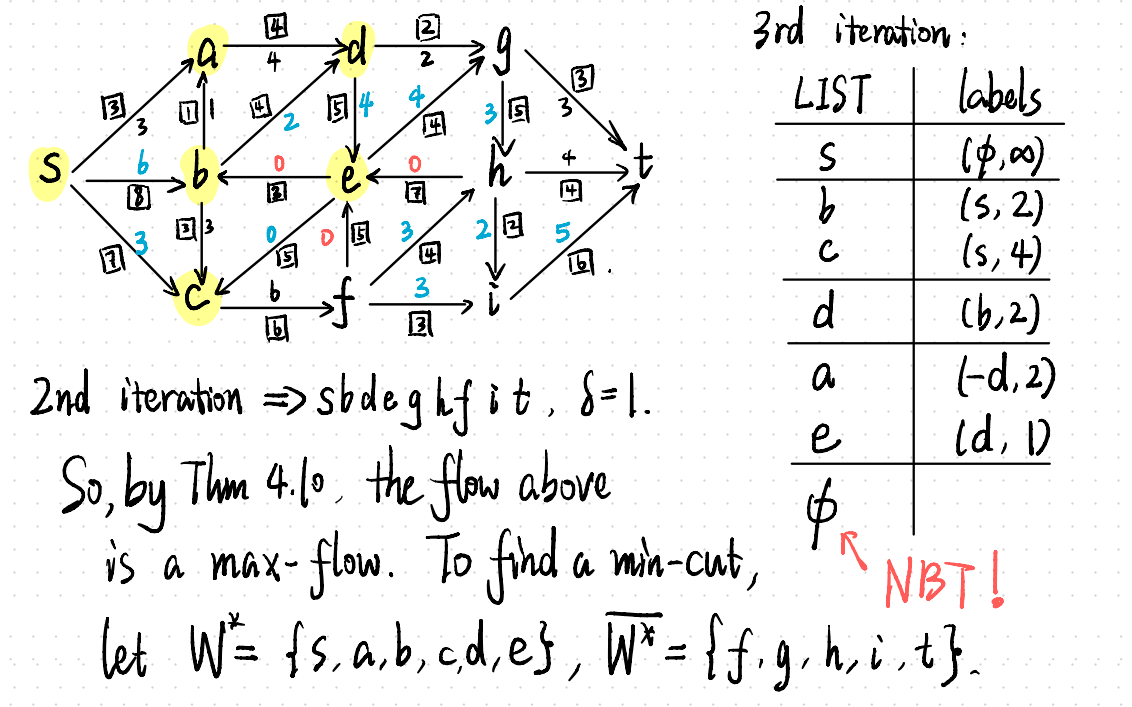 3rd iteration:
LIST labels
s (ϕ, ∞)
b (s, 2)
c (s, 4)
d (b, 2)
a (-d, 2)
e (d, 1)
ϕ
NBT!
4 2
a d g
4 2
3 3 1 1 4 2 5 4 4 4 3 5 3 3
6 0 0 4
s b e h t
8 3 7 4
3 7 3 3 0 5 0 5 3 4 2 2 5 6
6 3
c f i
6 3
2nd iteration ⇒ s b d e g h f i t, δ=1.
So, by Thm 4.10, the flow above
is a max-flow. To find a min-cut,
let W* = {s, a, b, c, d, e}, W̅*̅ = {f, g, h, i, t}.